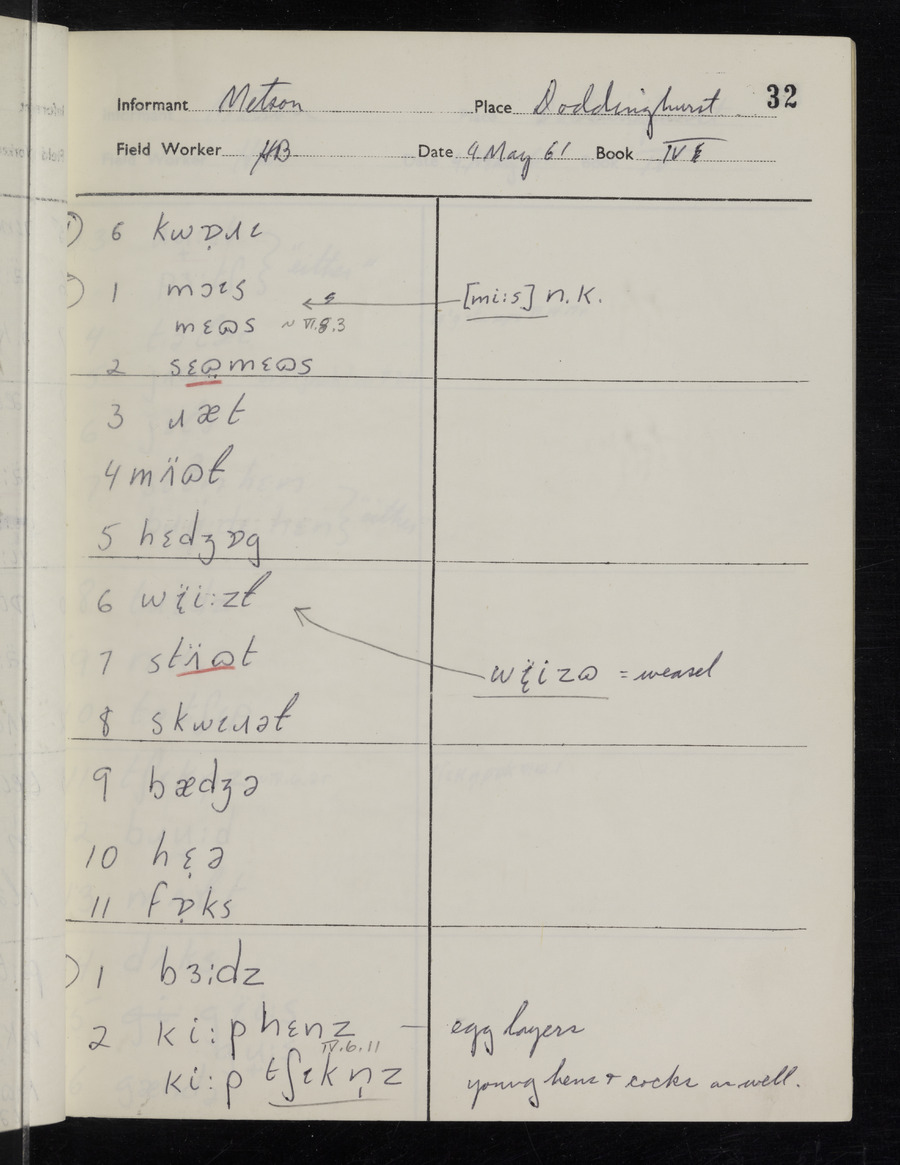 32
Informant Metson Place Doddinghurst
Field Worker HB Date 9 May 61 Book IV E
) 6 kwɒ̣ɹɩ
) 1 mɔɩs [mi:s] n.k.
mɛɷs ~ VI.8.3
2 sɛɷ̣mɛɷs
3 ɹæt
4 mïɷɫ
5 hɛdʒɒg
6 wï̞i:zɫ
7 stïɷt wï̞izɷ = weasel
8 skwɩɹəɫ
9 bædʒə
10 hɛ̣ə
11 fɒ̣ks
) 1 bɜ:dz
2 ki:p hɛnz — egg layers
IV.6.11
ki:p tʃɩkṇz young hens & cocks as well.